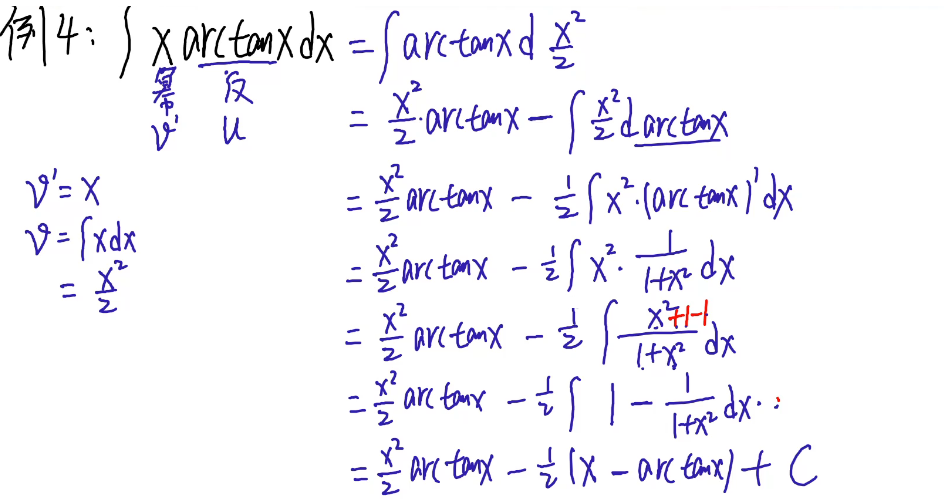 例4: ∫ x arctanx dx = ∫ arctanx d x²/2
幂 反
v' u
= x²/2 · arctanx - ∫ x²/2 d arctanx
v' = x
= x²/2 arctanx - 1/2 ∫ x² · (arctanx)' dx
v = ∫ x dx
= x²/2
= x²/2 arctanx - 1/2 ∫ x² · 1/(1+x²) dx
= x²/2 arctanx - 1/2 ∫ (x²+1-1)/(1+x²) dx
= x²/2 arctanx - 1/2 ∫ 1 - 1/(1+x²) dx
= x²/2 arctanx - 1/2 (x - arctanx) + C